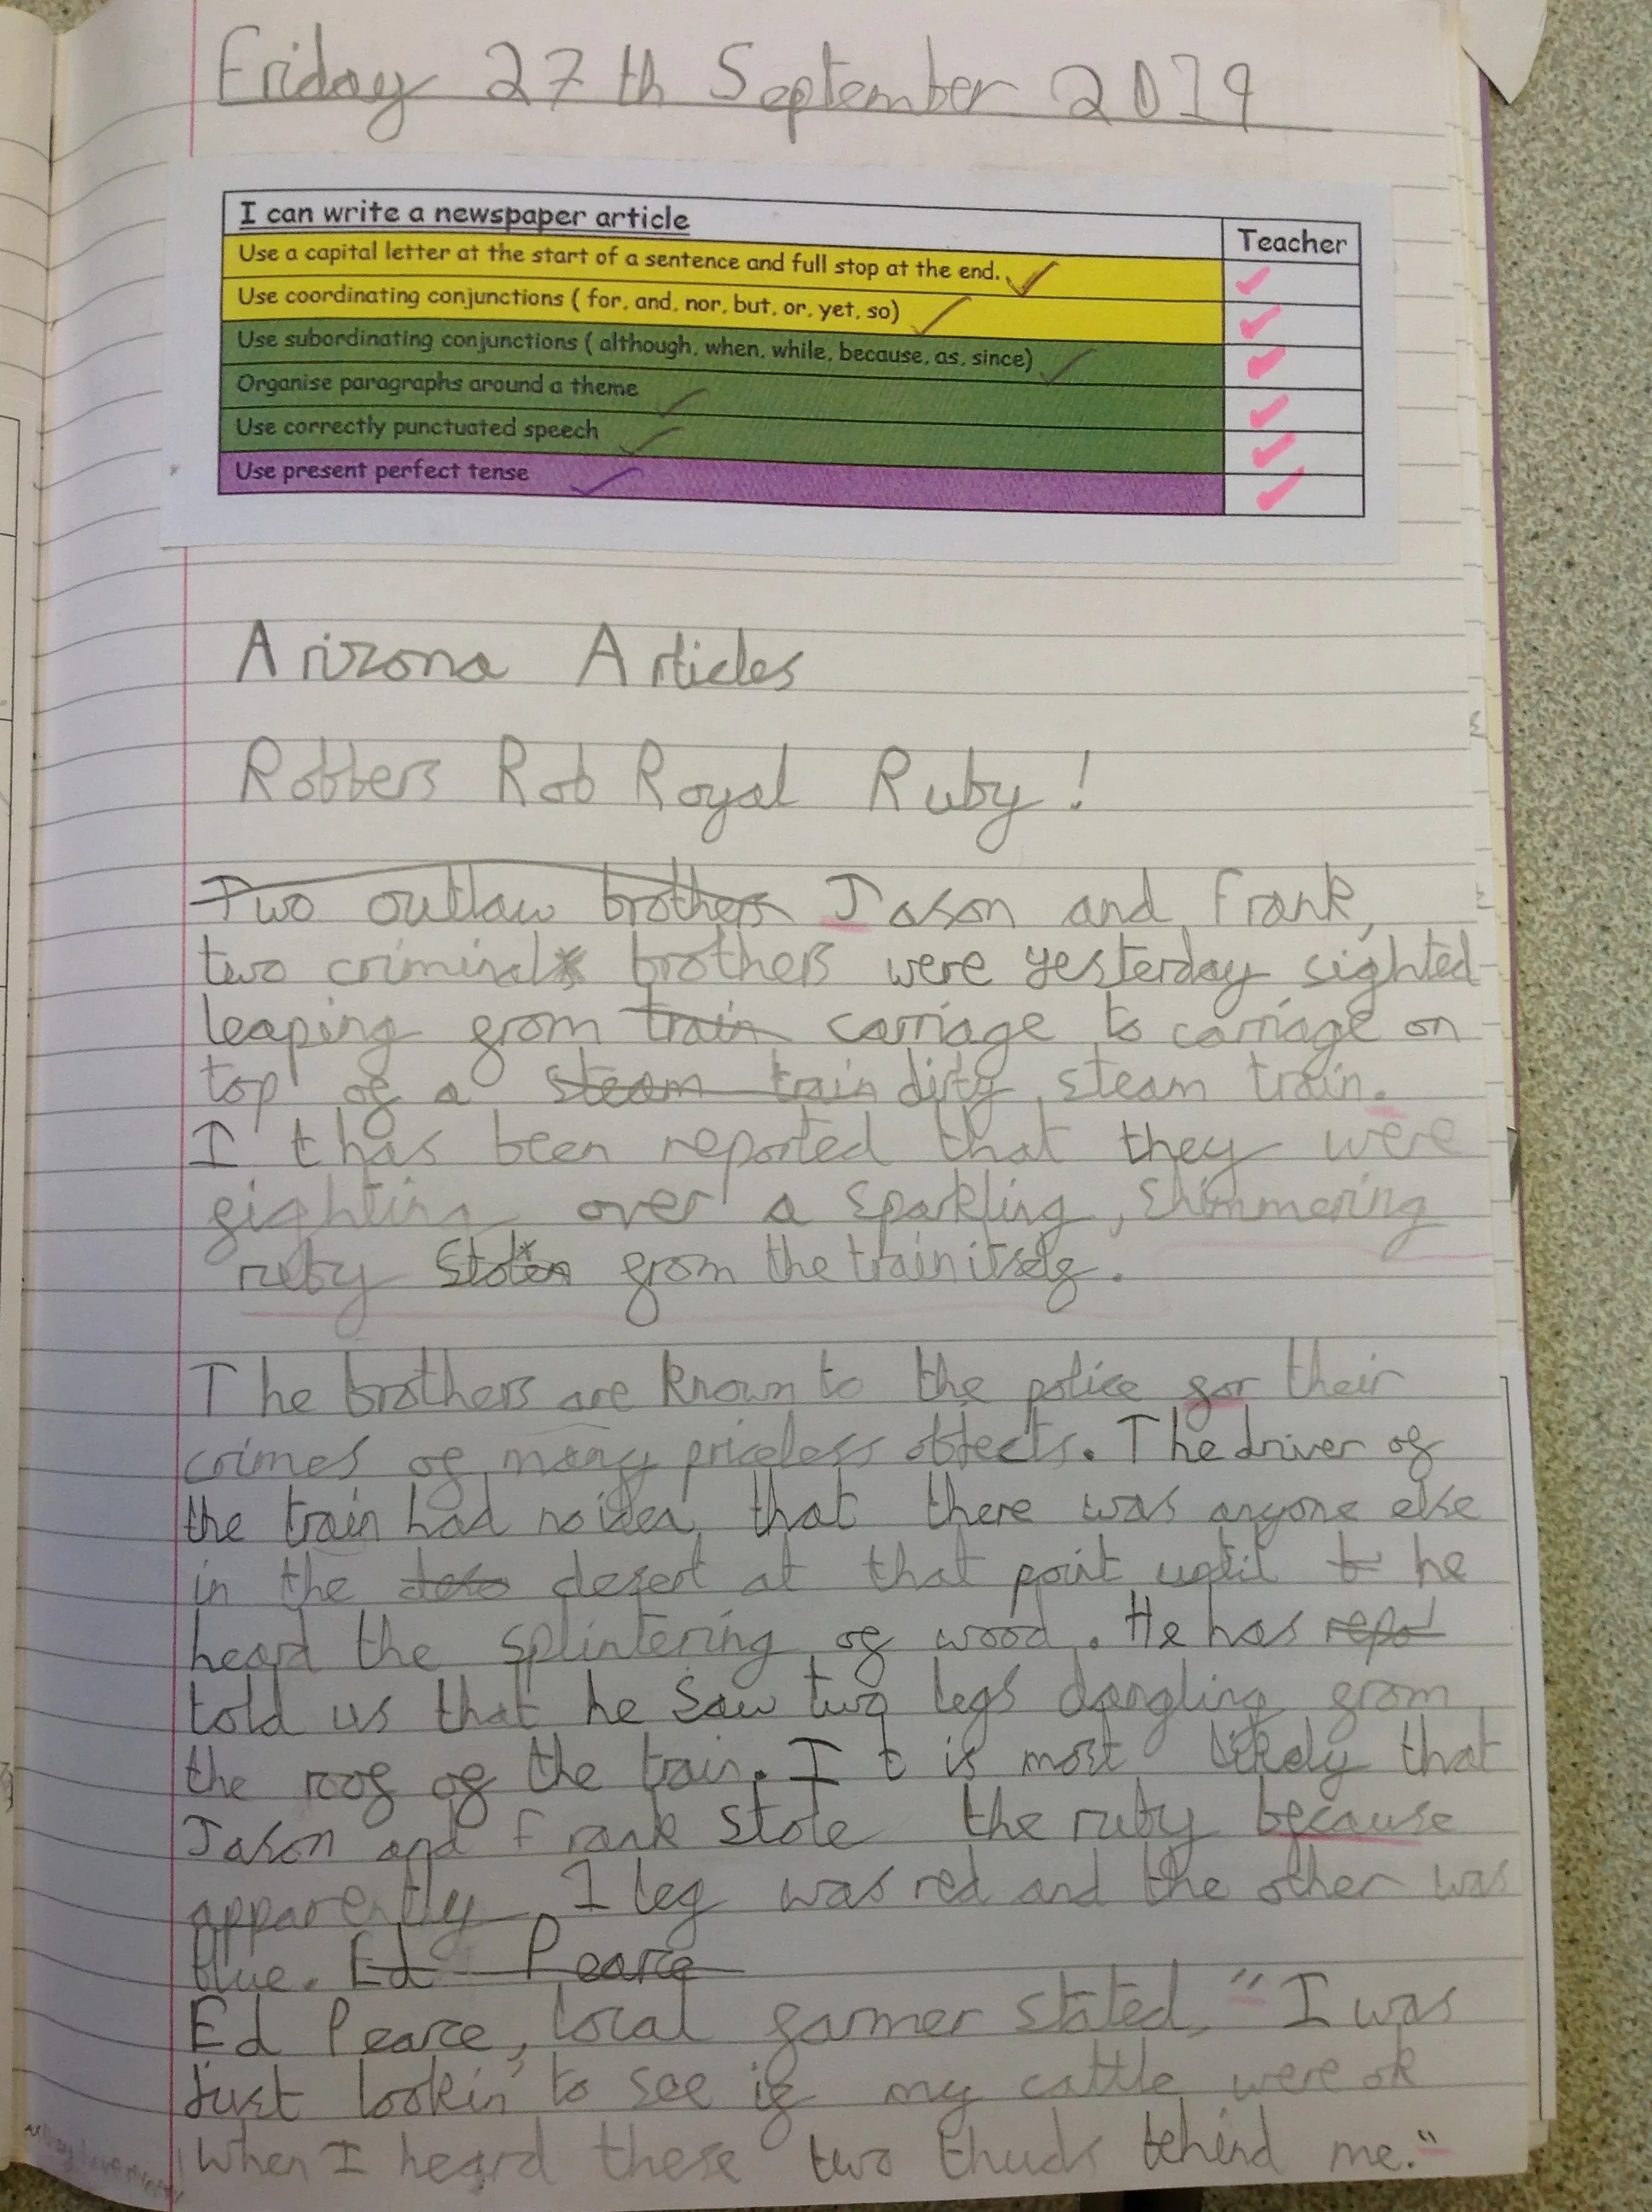 Friday 27th September 2019
I can write a newspaper article
Teacher
Use a capital letter at the start of a sentence and full stop at the end.
Use coordinating conjunctions ( for, and, nor, but, or, yet, so)
Use subordinating conjunctions ( although, when, while, because, as, since)
Organise paragraphs around a theme
Use correctly punctuated speech
Use present perfect tense
Arizona Articles
Robbers Rob Royal Ruby!
Two outlaw brothers Jason and Frank,
two criminal brothers were yesterday sighted
leaping from train carriage to carriage on
top of a steam train dirty steam train.
It has been reported that they were
fighting over a sparkling, shimmering
ruby stolen from the train itself.
The brothers are known to the police for their
crimes of many priceless objects. The driver of
the train had no idea that there was anyone else
in the dese desert at that point until he
heard the splintering of wood. He has repo
told us that he saw two legs dangling from
the roof of the train. It is most likely that
Jason and Frank stole the ruby because
apparently 1 leg was red and the other was
blue. Ed Pearce
Ed Pearce, local farmer stated, "I was
just lookin' to see if my cattle were ok
when I heard these two thuds behind me."